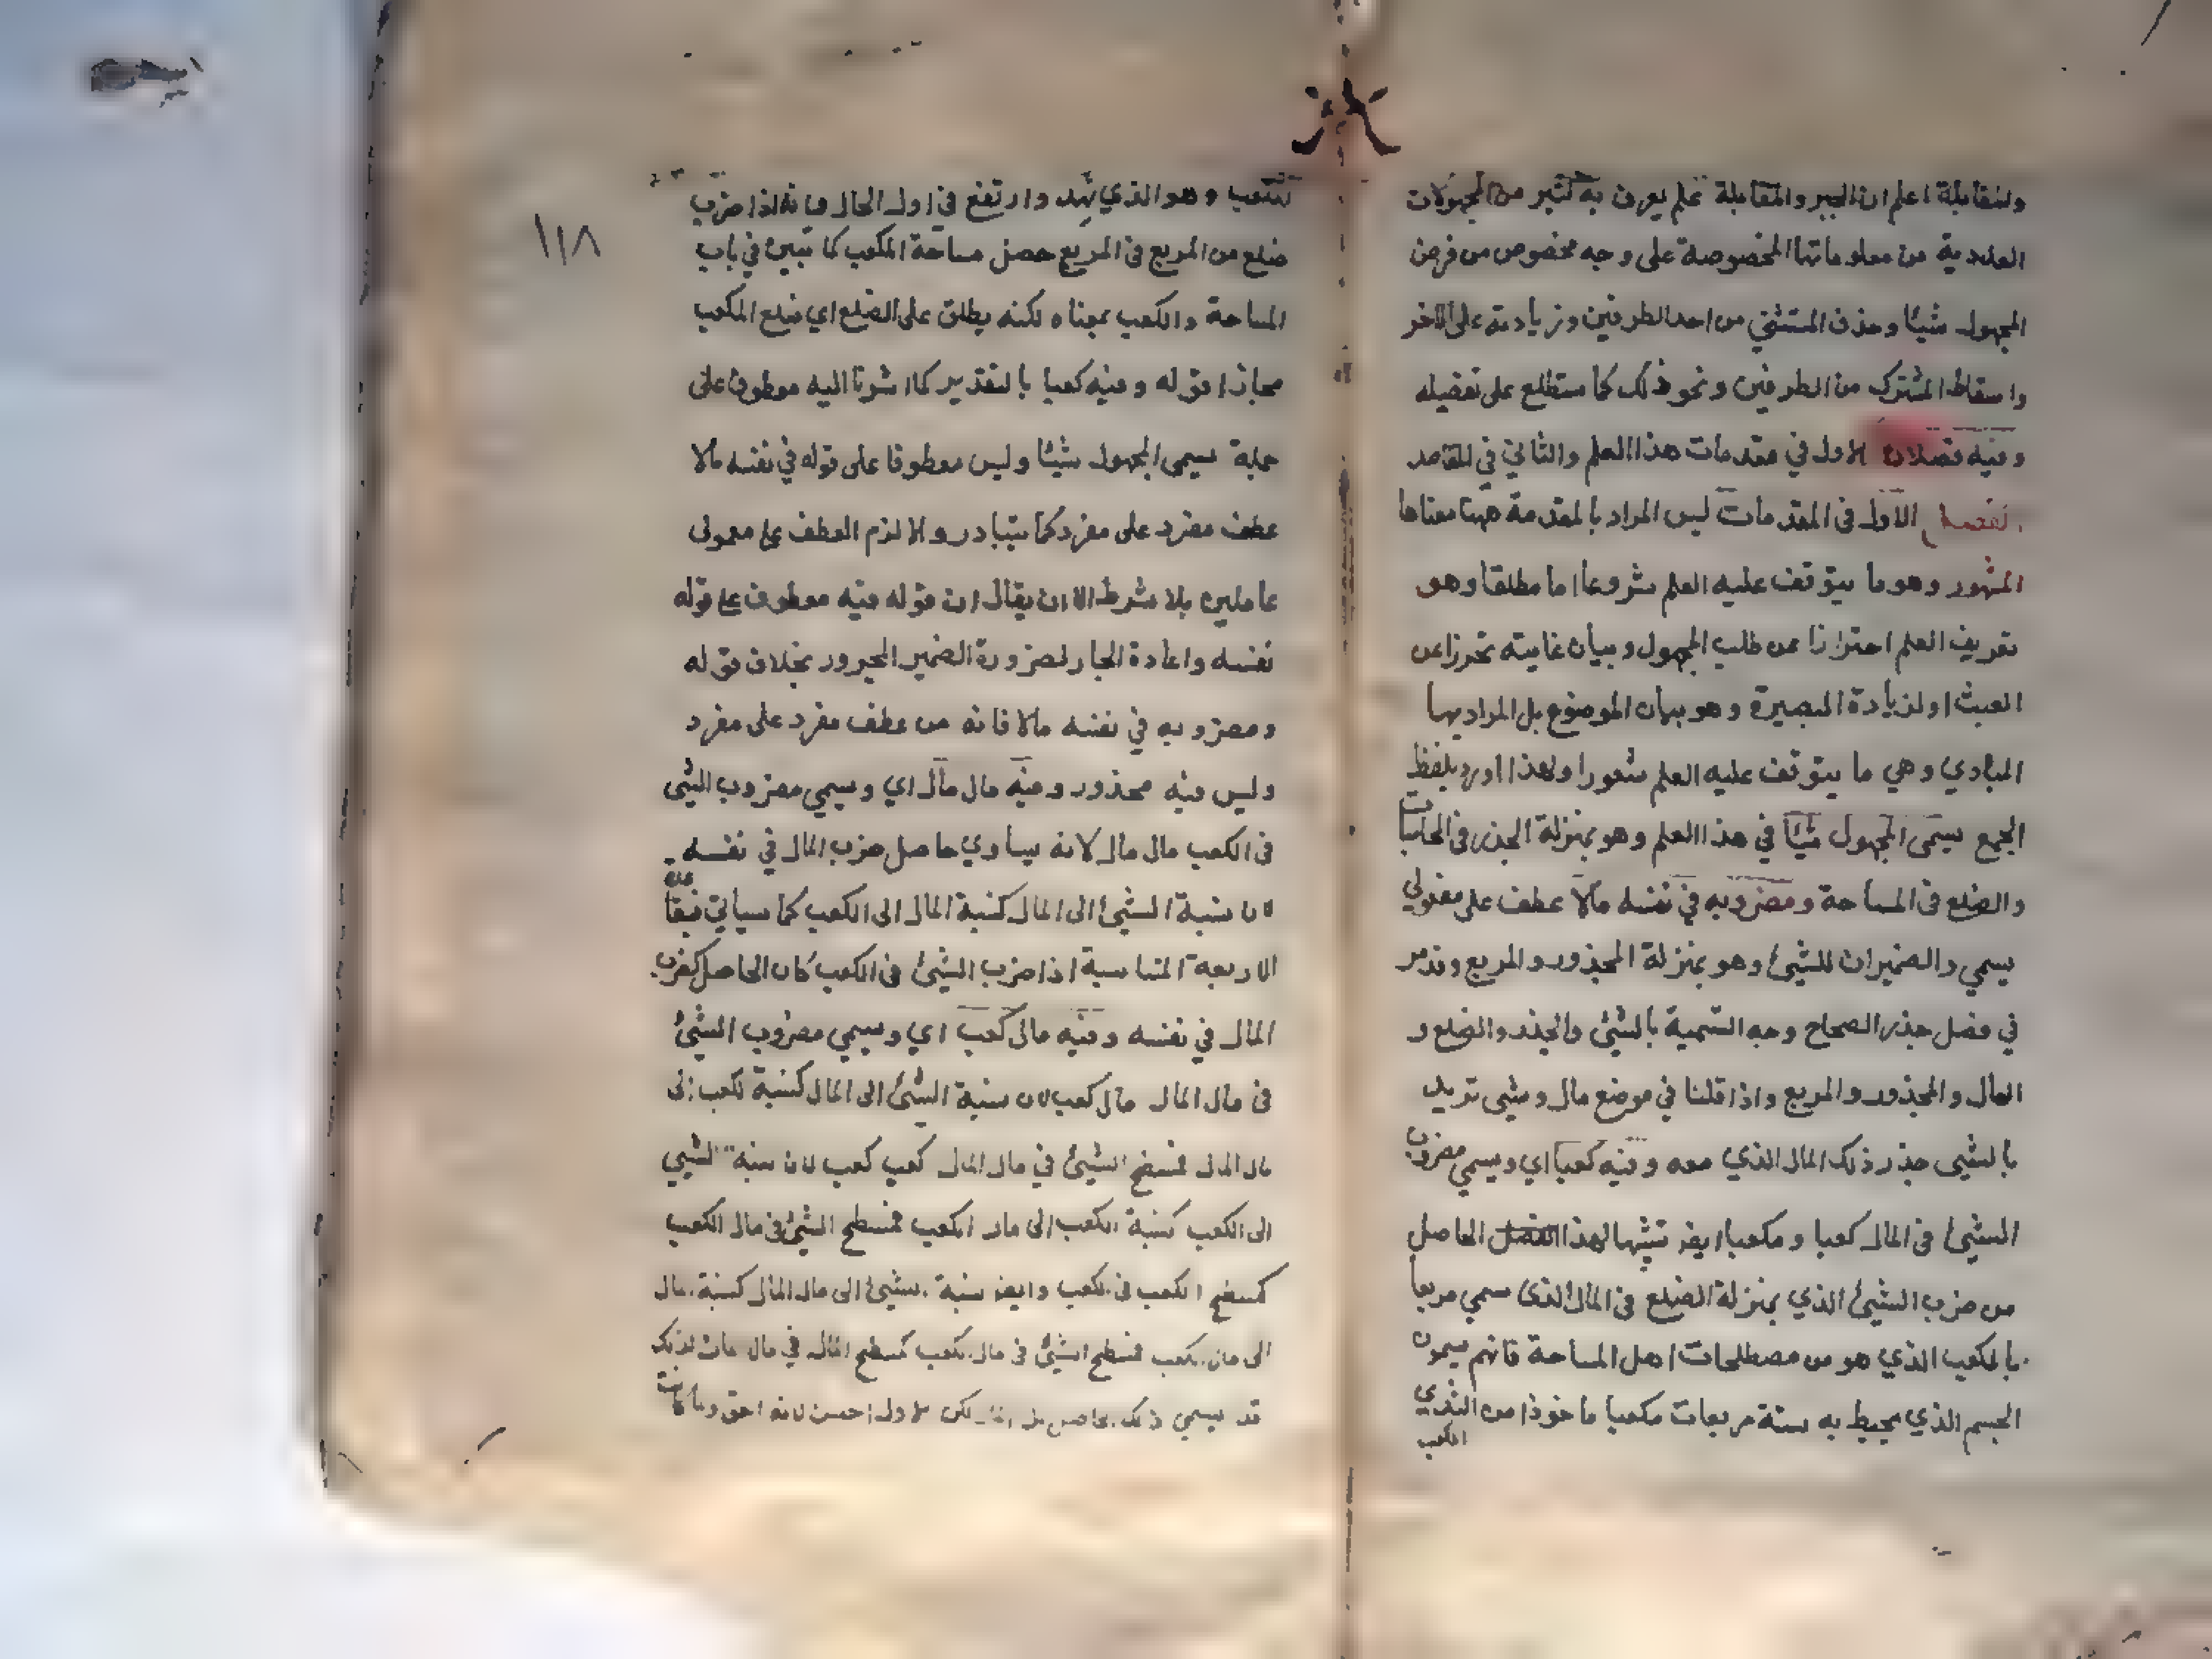 والمقابلة اعلم ان الجبر والمقابلة علم يعرف به كثير من المجهولات
العددية من معلوماتها المخصوصة على وجه مخصوص من فرض
المجهول شيئا وحذف المستثنى من احد الطرفين وزيادته على الاخر
واسقاط المشترك من الطرفين ونحو ذلك كما ستطلع على تفصيله
وفيه فصلان الاول في مقدمات هذا العلم والثاني في المقاصد
الفصل الاول في المقدمات ليس المراد بالمقدمة ههنا معناها
المشهور وهو ما يتوقف عليه العلم شروعا اما مطلقا وهو
تعريف العلم احترازا عن طلب المجهول وبيان غايته تحرزا عن
العبث او لزيادة البصيرة وهو بيان الموضوع بل المراد بها
المبادي وهي ما يتوقف عليه العلم شعورا ولهذا اورد بلفظ
الجمع يسمى المجهول شيئا في هذا العلم وهو بمنزلة الجذر في الحاسبات
والضلع في المساحة ومضروبه في نفسه مالا عطف على مفعولي
يسمي والضميران للشيئ وهو بمنزلة المجذور والمربع وقد مر
في فصل جذر الصحاح وجه التسمية بالشيئ والجذر والضلع و
المال والمجذور والمربع واذا قلنا في موضع مال وشيى نريد
بالشيى جذر ذلك المال الذي معه وفيه كعبا اي ويسمي مضروب
الشيئ في المال كعبا ومكعبا ايض تشبيها لهذا الحاصل
من ضرب الشيئ الذي بمنزلة الضلع في المال الذى سمي مربعا
بالمكعب الذي هو من مصطلحات اهل المساحة فانهم يسمون
الجسم الذي يحيط به ستة مربعات مكعبا ماخوذا من الثدي
المكعب
١١٨
وهو الذي نهد وارتفع في اول الحال فانه اذا ضرب
ضلع من المربع في المربع حصل مساحة المكعب كما تبين في باب
المساحة والكعب بمعناه لكنه يطلق على الضلع اي ضلع المكعب
مجازا قوله وفيه كعبا بالتقدير كما اشرنا اليه معطوف على
جملة يسمى المجهول شيئا وليس معطوفا على قوله في نفسه مالا
عطف مفرد على مفرد كما يتبادر والا لزم العطف على معمولى
عاملين بلا شرط الا ان يقال ان قوله فيه معطوف على قوله
نفسه واعادة الجار لضرورة الضمير المجرور بخلاف قوله
ومضروبه في نفسه مالا فانه من عطف مفرد على مفرد
وليس فيه محذور وفيه مال مال اي ويسمي مضروب الشيى
في الكعب مال مال لانه يساوي حاصل ضرب المال في نفسه
لان نسبة الشيئ الى المال كنسبة المال الى الكعب كما سيأتي
الاربعة المتناسبة اذا ضرب الشيئ في الكعب كان الحاصل كضرب
المال في نفسه وفيه مال كعب اي ويسمي مضروب الشيئ
في مال المال مال كعب لان نسبة الشيئ الى المال كنسبة الكعب الى
مال المال فمسطح الشيئ في مال المال كعب كعب لان نسبة الشيي
الى الكعب كنسبة الكعب الى مال الكعب فمسطح الشيئ في مال الكعب
كمسطح الكعب في الكعب وايض نسبة الشيئ الى مال المال كنسبة المال
الى مال الكعب فمسطح الشيئ في مال الكعب كمسطح المال في مال
قد يسمي ذلك الحاصل مال المال لكن الاول احسن لانه احق